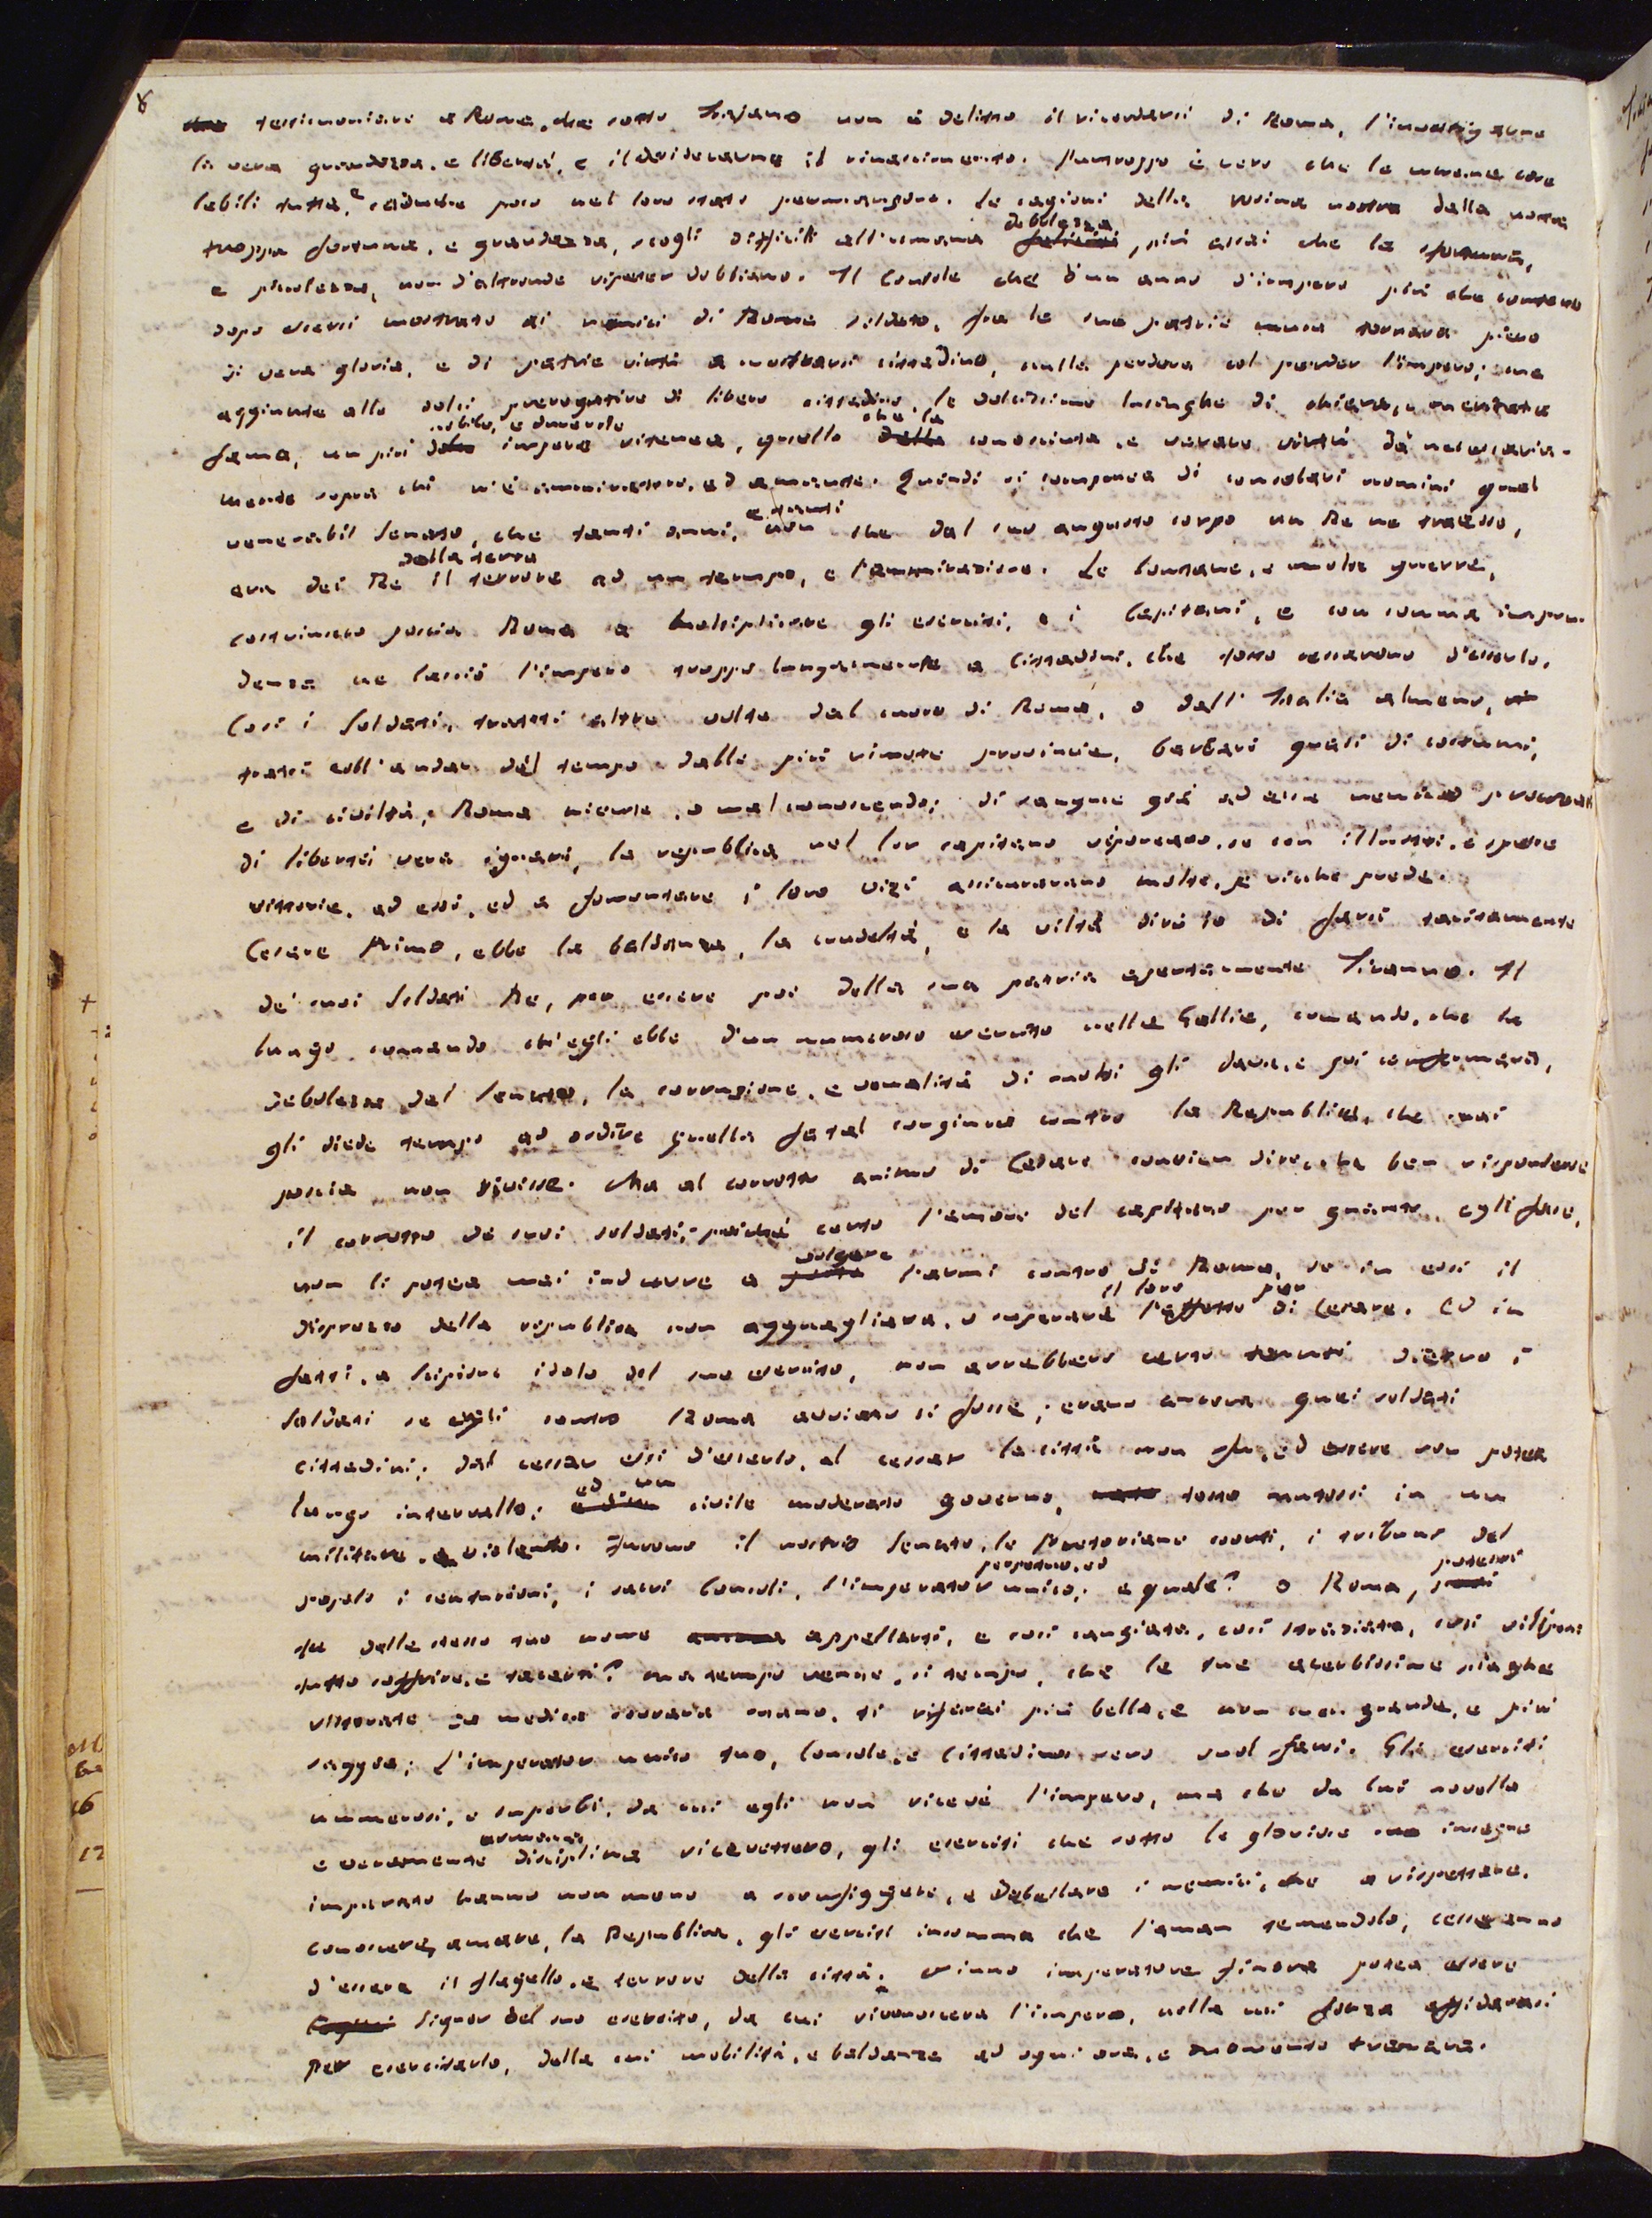 8
testimoniare a Roma, che sotto Trajano non è delitto il ricordarsi di Roma, l'investigarne
la vera grandezza, e libertà, e il desiderarne il rinascimento. Purtroppo è vero che le umane cose
labili tutte, e caduche poco nel loro stato permangono. Le cagioni della rovina nostra dalla nostra
debolezza
troppa fortuna, e grandezza, scogli difficili all'umana più assai che la sventura,
e picciolezza, non d'altronde ripeter dobbiamo. Il Console che d'un anno d'impero più che contento
dopo essersi mostrato ai nemici di Roma soldato, fra le sue patrie mura tornava pieno
di vera gloria, e di patrie virtù a mostrarsi cittadino, nulla perdeva col perder l'impero; ma
aggiunte alle dolci prerogative di libero cittadino, le dolcissime lusinghe di chiara, e meritata
nobile, e durevole che la
fama, un più impero ritenea, quello conosciuta, e verace virtù dà necessaria-
mente sopra chi n'è ammiratore, ed amante. Quindi si componea di consolari uomini quel
e tanti
venerabil senato, che tanti anni, non che dal suo augusto corpo un Re ne traesse,
della terra
era dei Re il terrore ad un tempo, e l'ammirazione. Le lontane, e molte guerre,
costrinsero poscia Roma a moltiplicare gli eserciti, e i Capitani, e con somma impru-
denza ne lasciò l'impero troppo lungamente a Cittadini, che tosto cessarono d'esserlo.
Così i Soldati, tratti altre volte dal cuore di Roma, o dall'Italia almeno,
tratti coll'andar del tempo dalle più rimote provincie, barbari quasi di costumi,
e di civiltà, Roma niente, o mal conoscendo; di sangue già ad essa nemico procreati
di libertà vera ignari, la repubblica nel lor capitano riponeano, se con illustri, e spesse
vittorie, ad essi, ed a fomentare i loro vizi assicuravano molte, e ricche prede.
Cesare Primo, ebbe la baldanza, la crudeltà, e la viltà dirò io di farsi tacitamente
de' suoi Soldati Re, per essere poi della sua patria apertamente Tiranno. Il
lungo comando ch'egli ebbe d'un numeroso esercito nelle Gallie, comando, che la
debolezza del Senato, la corruzione, e venalità di molti gli dava, e poi confermava,
gli diede tempo ad ordire quella fatal congiura contro la Repubblica, che mai
poscia non rivisse. Ma al corrotto animo di Cesare convien dire, che ben rispondesse
il corrotto de' suoi soldati, poiché certo l'amore del capitano per quanto egli fosse,
volgere
non li potea mai indurre a l'armi contro di Roma, se in essi il
il loro per
disprezzo della repubblica non agguagliava, o superava l'affetto di Cesare. Ed in
fatti, a Scipione idolo del suo esercito, non avrebbero certo tenuto dietro i
Soldati se egli contro Roma avviato si fosse; erano ancora quei soldati
cittadini; dal cessar essi d'esserlo, al cessar la città non fu, ed essere non potea
ed un
lungo intervallo; civile moderato governo, tosto mutossi in un
militare, e violento. Furono il nostro Senato, le Pretoriane coorti, i tribuni del
perpetuo, ed potesti
popolo i centurioni, i sacri Consoli, l'imperatore unico; e quale? o Roma,
tu dello stesso tuo nome appellarti, e così cangiata, così straziata, così vilipesa
tutto soffrire, e tacerti? ma tempo venne, sì tempo, che le tue acerbissime piaghe
ristorate da medica sovrana mano, ti rifarai più bella, e non men grande, e più
saggia; l'imperator unico tuo, Console, e Cittadino vero suol farsi. Gli eserciti
numerosi, e superbi, da cui egli non riceve l'impero, ma che da lui novella
e veramente disciplina ricevettero, gli eserciti che sotto le gloriose sue insegne
imparato hanno non meno a sconfiggere, e debellare i nemici, che a rispettare,
conoscere, amare, la Repubblica, gli eserciti insomma che l'aman temendolo, cesseranno
d'essere il flagello, e terrore della città. Niuno imperatore finora potea essere
Signor del suo esercito, da cui riconosceva l'impero, nella cui forza affidavasi
per esercitarlo, della cui mobilità, e baldanza ad ogni ora, e momento tremava.